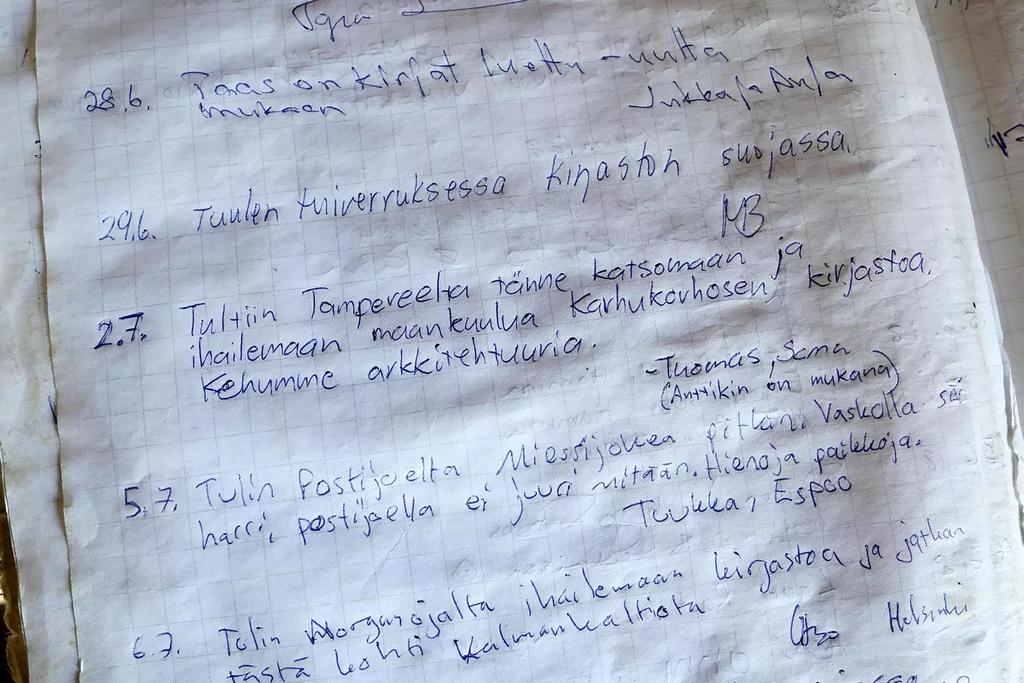 28.6. Taas on kirjat luettu - uutta
mukaan Jukka ja Anja
29.6. Tuulen tuiverruksessa kirjaston suojassa.
MB
2.7. Tultiin Tampereelta tänne katsomaan ja
ihailemaan maankuulua Karhukorhosen kirjastoa.
Kehumme arkkitehtuuria.
-Tuomas, Sama
(Anttikin on mukana)
5.7. Tulin Postijoelta Miessijokea pitkin. Vaskolla
harri, postijoella ei juuri mitään. Hienoja paikkoja.
Tuukka, Espoo
6.7. Tulin Morganojalta ihailemaan kirjastoa ja jatkan
tästä kohti Kalmankaltiota
Helsinki